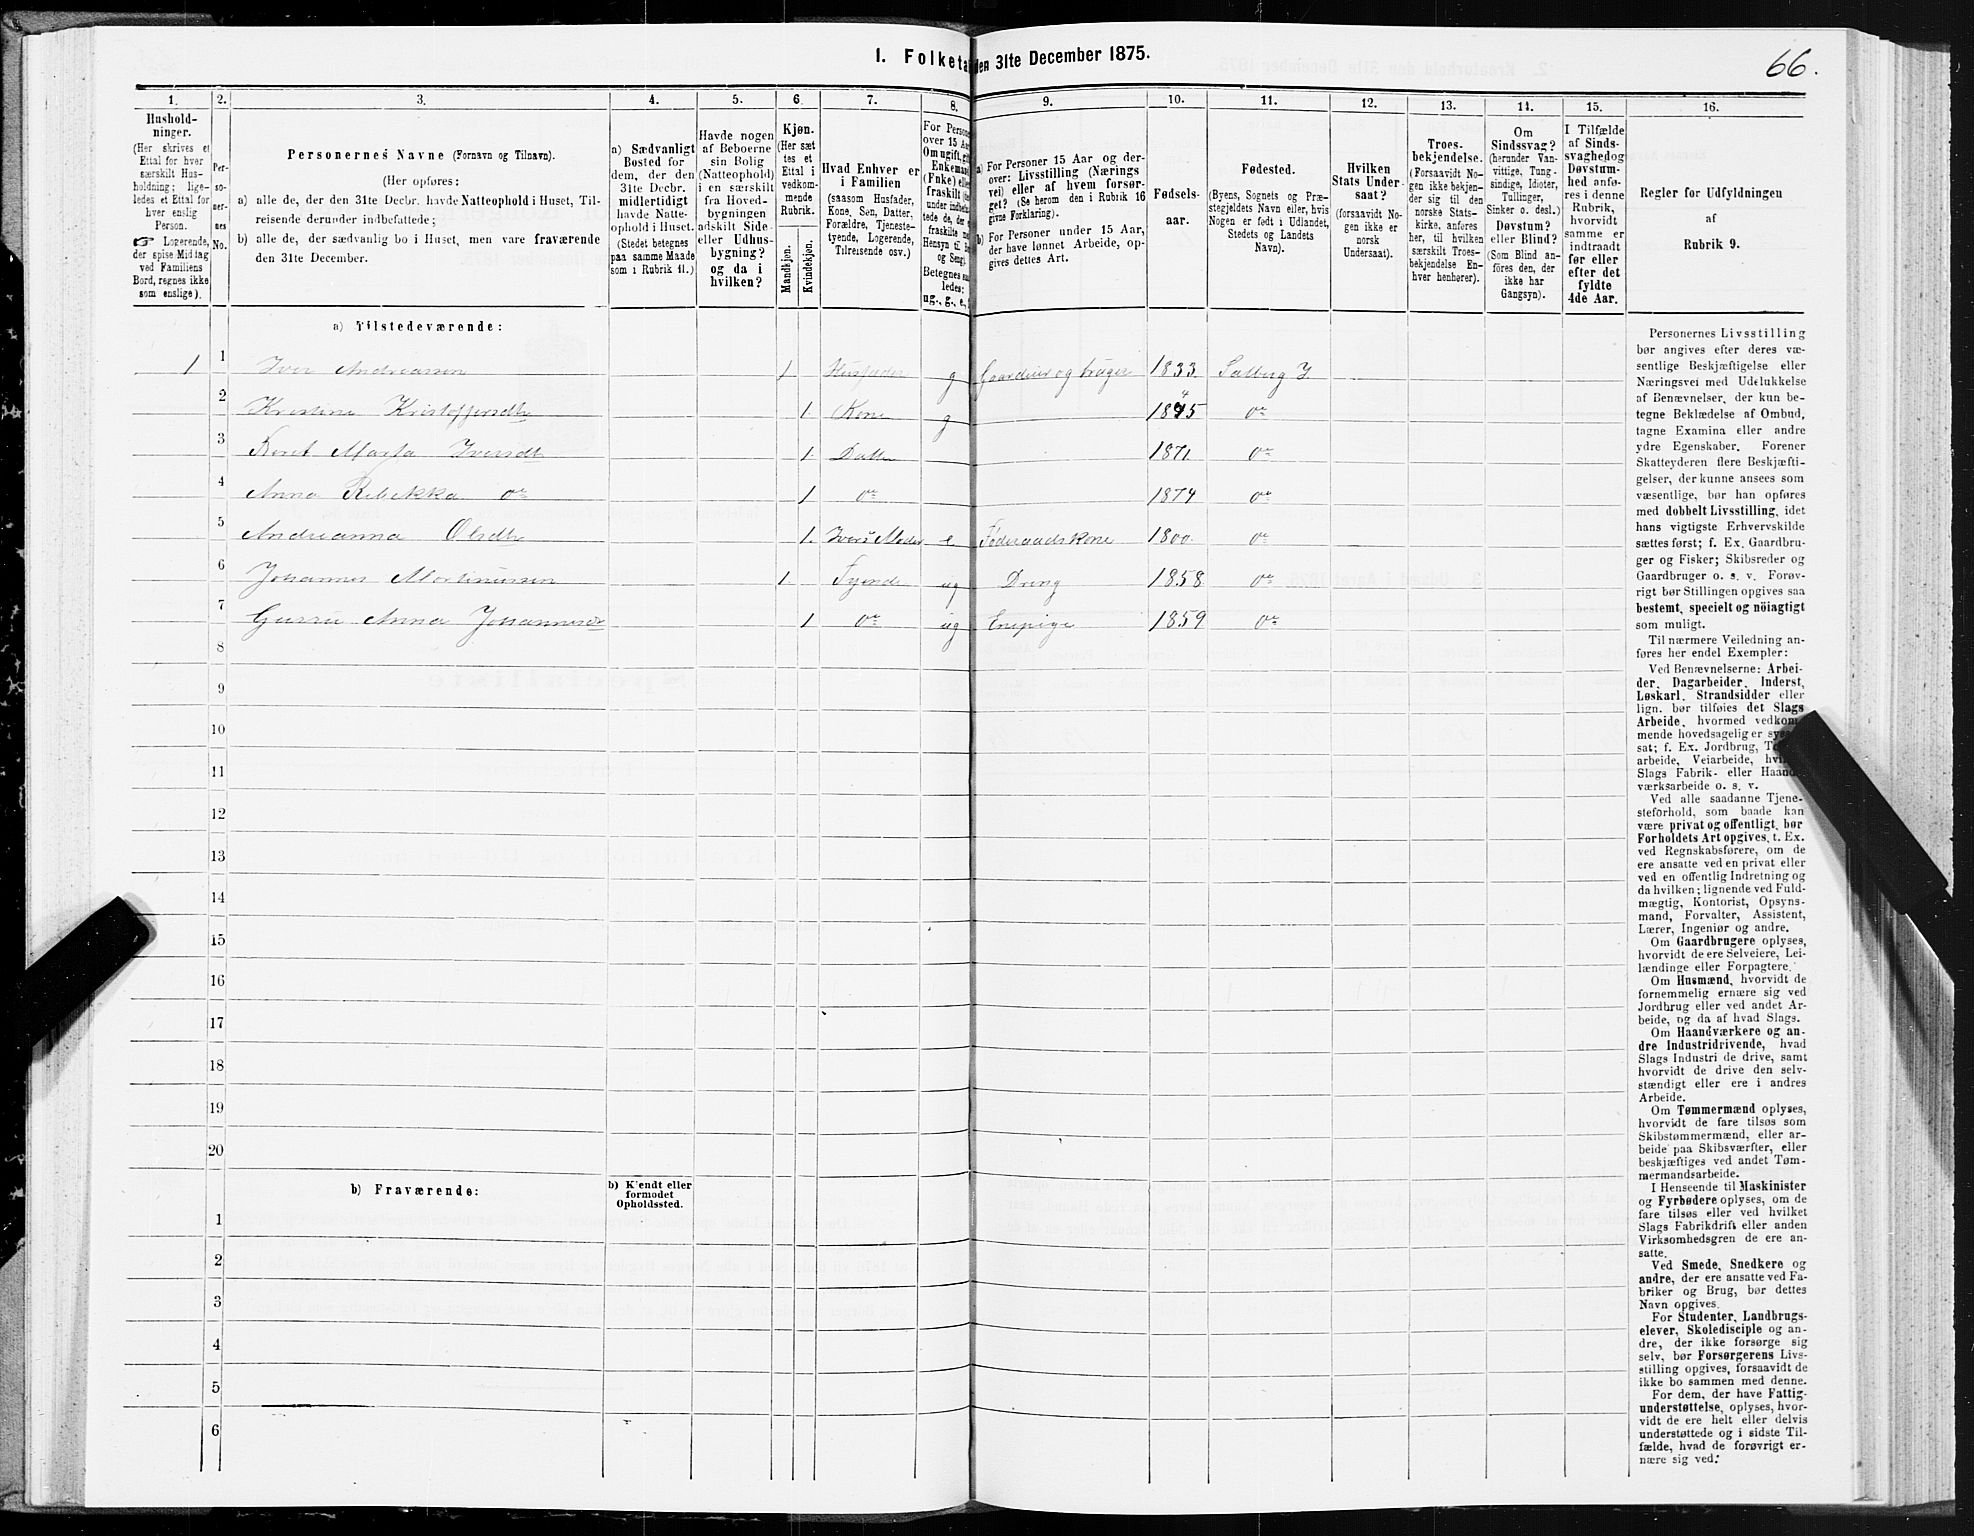 1. Folketa den 31te December 1875.
66.
1. 2. 3. 4. 5. 6. 7. 8. 9. 10. 11. 12. 13. 14. 15. 16.
Hushold-
ninger.
(Her skrives et
Ettal for hver
særskilt Hus-
holdning; lige-
ledes et Ettal for
hver enslig
Person.
☞ Logerende,
der spise Middag
ved Familiens
Bord, regnes ikke
som enslige).
Per-
so-
ner-
nes
No.
Personernes Navne (Fornavn og Tilnavn).
(Her opføres:
a) alle de, der den 31te Decbr. havde Natteophold i Huset, Til-
reisende derunder indbefattede;
b) alle de, der sædvanlig bo i Huset, men vare fraværende
den 31te December.
a) Sædvanligt
Bosted for
dem, der den
31te Decbr.
midlertidigt
havde Natte-
ophold i Huset.
(Stedet betegnes
paa samme Maade
som i Rubrik 11.)
Havde nogen
af Beboerne
sin Bolig
(Natteophold)
i en særskilt
fra Hoved-
bygningen
adskilt Side-
eller Udhus-
bygning?
og da i
hvilken?
Kjøn.
(Her sæt
tes et
Ettal i
vedkom-
mende
Rubrik.
Mandkjøn.
Kvindekjøn.
Hvad Enhver er
i Familien
(saasom Husfader,
Kone, Søn, Datter,
Forældre, Tjeneste-
tyende, Logerende,
Tilreisende osv.)
For Persone
over 15 Aa
Om ugift, gif
Enkemand
(Enke) elle
fraskilt (se
under indbefat-
tede de, der e
fraskilte me
Hensyn til B
og Seng).
Betegnes saa
ledes:
ug., g., e.,
a) For Personer 15 Aar og der-
over: Livsstilling (Nærings
vei) eller af hvem forsør-
get? (Se herom den i Rubrik 16
givne Forklaring).
b) For Personer under 15 Aar,
der have lønnet Arbeide, op-
gives dettes Art.
Fødsels-
aar.
Fødested.
(Byens, Sognets og Præ-
stegjeldets Navn eller, hvis
Nogen er født i Udlandet,
Stedets og Landets
Navn).
Hvilken
Stats Under-
saat?
(forsaavidt No-
gen ikke er
norsk
Undersaat).
Troes-
bekjendelse.
(Forsaavidt No-
gen ikke bekjen-
der sig til den
norske Stats-
kirke, anføres
her, til hvilken
særskilt Troes-
bekjendelse En-
hver henhører).
Om
Sindssvag?
(herunder Van-
vittige, Tung-
sindige, Idioter,
Tullinger,
Sinker o. desl.)
Døvstum?
eller Blind?
(Som Blind an-
føres den, der
ikke har
Gangsyn).
I Tilfælde
af Sinds-
svaghed og
Døvstum-
hed anfø-
res i denne
Rubrik,
hvorvidt
samme er
indtraadt
før eller
efter det
fyldte
4de Aar.
Regler for Udfyldningen
af
Rubrik 9.
a) Tilstedeværende:
1 1 Iver Andreassen 1 Husfader g Gaardeier og bruger 1833 Salberg Y.
2 Kristine Kristoffersdtr 1. Kone g 1845 do
3 Beret Marja Iversdtr 1. Datter 1871 do
4 Anna Rebekka do 1 do 1874 do
5 Andreanna Olsdtr 1. Ivers Moder e Føderaadskone 1800. do
6 Johannes Martinussen 1. Tyende ug Dreng 1858 do
7 Gurru Anna Johannesdr 1 do ug Enepige 1859 do
8
9
10
11
12
13
14
15
16
17
18
19
20
b) Fraværende:
b) Kjendt eller
formodet
Opholdssted.
1
2
3
4
5
6
Personernes Livsstilling
bør angives efter deres væ-
sentlige Beskjæftigelse eller
Næringsvei med Udelukkelse
af Benævnelser, der kun be-
tegne Beklædelse af Ombud,
tagne Examina eller andre
ydre Egenskaber. Forener
Skatteyderen flere Beskjæfti-
gelser, der kunne ansees som
væsentlige, bør han opføres
med dobbelt Livsstilling, idet
hans vigtigste Erhvervskilde
sættes først; f. Ex. Gaardbru-
ger og Fisker; Skibsreder og
Gaardbruger o. s. v. Forøv-
rigt bør Stillingen opgives saa
bestemt, specielt og nöiagtigt
som muligt.
Til nærmere Veiledning an-
føres her endel Exempler:
Ved Benævnelserne: Arbei-
der, Dagarbeider, Inderst,
Løskarl, Strandsidder eller
lign. bør tilføies det Slags
Arbeide, hvormed vedkom-
mende hovedsagelig er syssel-
sat; f. Ex. Jordbrug, T
arbeide, Veiarbeide, hvil
Slags Fabrik- eller Haand-
værksarbeide o. s. v.
Ved alle saadanne Tjene-
steforhold, som baade kan
være privat og offentligt, bør
Forholdets Art opgives, t. Ex.
ved Regnskabsførere, om de
ere ansatte ved en privat eller
ved en offentlig Indretning og
da hvilken; lignende ved Fuld-
mægtig, Kontorist, Opsyns-
mand, Forvalter, Assistent,
Lærer, Ingeniør og andre.
Om Gaardbrugere oplyses,
hvorvidt de ere Selveiere, Lei-
lændinge eller Forpagtere.
Om Husmænd, hvorvidt de
fornemmelig ernære sig ved
Jordbrug eller ved andet Ar-
beide, og da af hvad Slags.
Om Haandværkere og an-
dre Industridrivende, hvad
Slags Industri de drive, samt
hvorvidt de drive den selv-
stændigt eller ere i andres
Arbeide.
Om Tømmermænd oplyses,
hvorvidt de fare tilsøs som
Skibstømmermænd, eller ar-
beide paa Skibsværfter, eller
beskjæftiges ved andet Tøm-
mermandsarbeide.
I Henseende til Maskinister
og Fyrbødere oplyses, om de
fare tilsøs eller ved hvilket
Slags Fabrikdrift eller anden
Virksomhedsgren de ere an-
satte.
Ved Smede, Snedkere og
andre, der ere ansatte ved Fa-
briker og Brug, bør dettes
Navn opgives.
For Studenter, Landbrugs-
elever, Skoledisciple og an-
dre, der ikke forsørge sig
selv, bør Forsørgerens Livs-
stilling opgives, forsaavidt de
ikke bo sammen med denne.
For dem, der have Fattig-
understøttelse, oplyses, hvor-
vidt de ere helt eller delvis
understøttede og i sidste Til-
fælde, hvad de forøvrigt er-
nære sig ved.